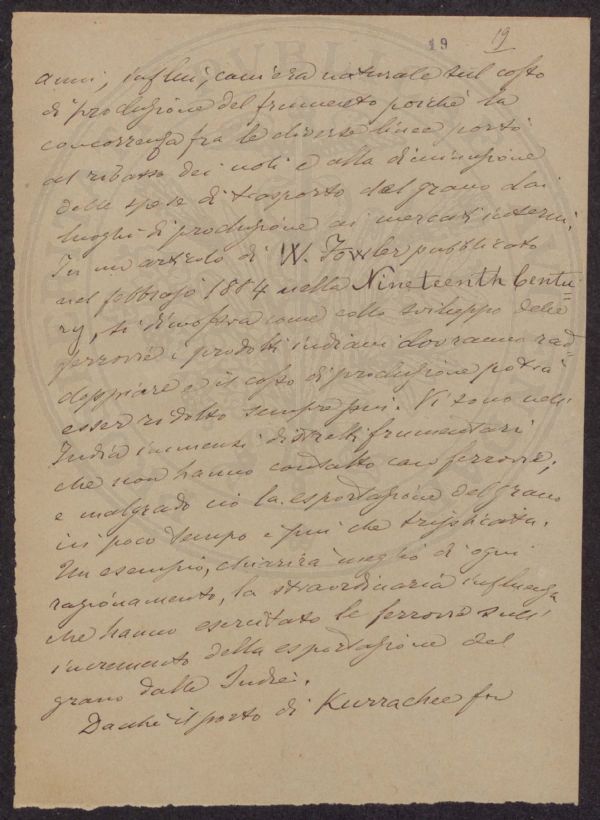 19 19
anni, influì, com'era naturale sul costo
di produzione del frumento poichè la
concorrenza fra le diverse linee portò
al ribasso dei noli e alla diminuzione
delle spese di trasporto del grano dai
luoghi di produzione ai mercati interni.
In un articolo di W. Fowler pubblicato
nel febbraio 1884 nella Nineteenth Centu-
ry, si dimostra come collo sviluppo delle
ferrovie i prodotti indiani dovranno rad-
doppiare e il costo di produzione potrà
esser ridotto sempre più. Vi sono nell'
India immensi distretti frumentari
che non hanno contatto con ferrovie;
e malgrado ciò la esportazione del grano
in poco tempo è più che triplicata.
Un esempio, chiarirà meglio di ogni
ragionamento, la straordinaria influenza
che hanno esercitato le ferrovie sull'
incremento della esportazione del
grano dalle Indie.
Dacchè il porto di Kurrachee fu